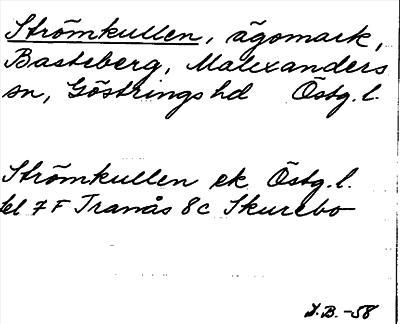 Strömkullen, ägomark,
Basteberg, Malexanders
sn, Göstrings hd Östg. l.
Strömkullen ek Östg. l.
bl 7 F Tranås 8 c Skurebo
S.B. -58